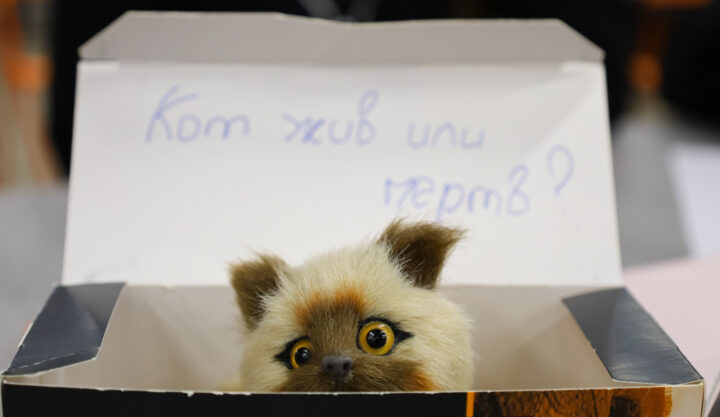 Кот жив или
мертв?